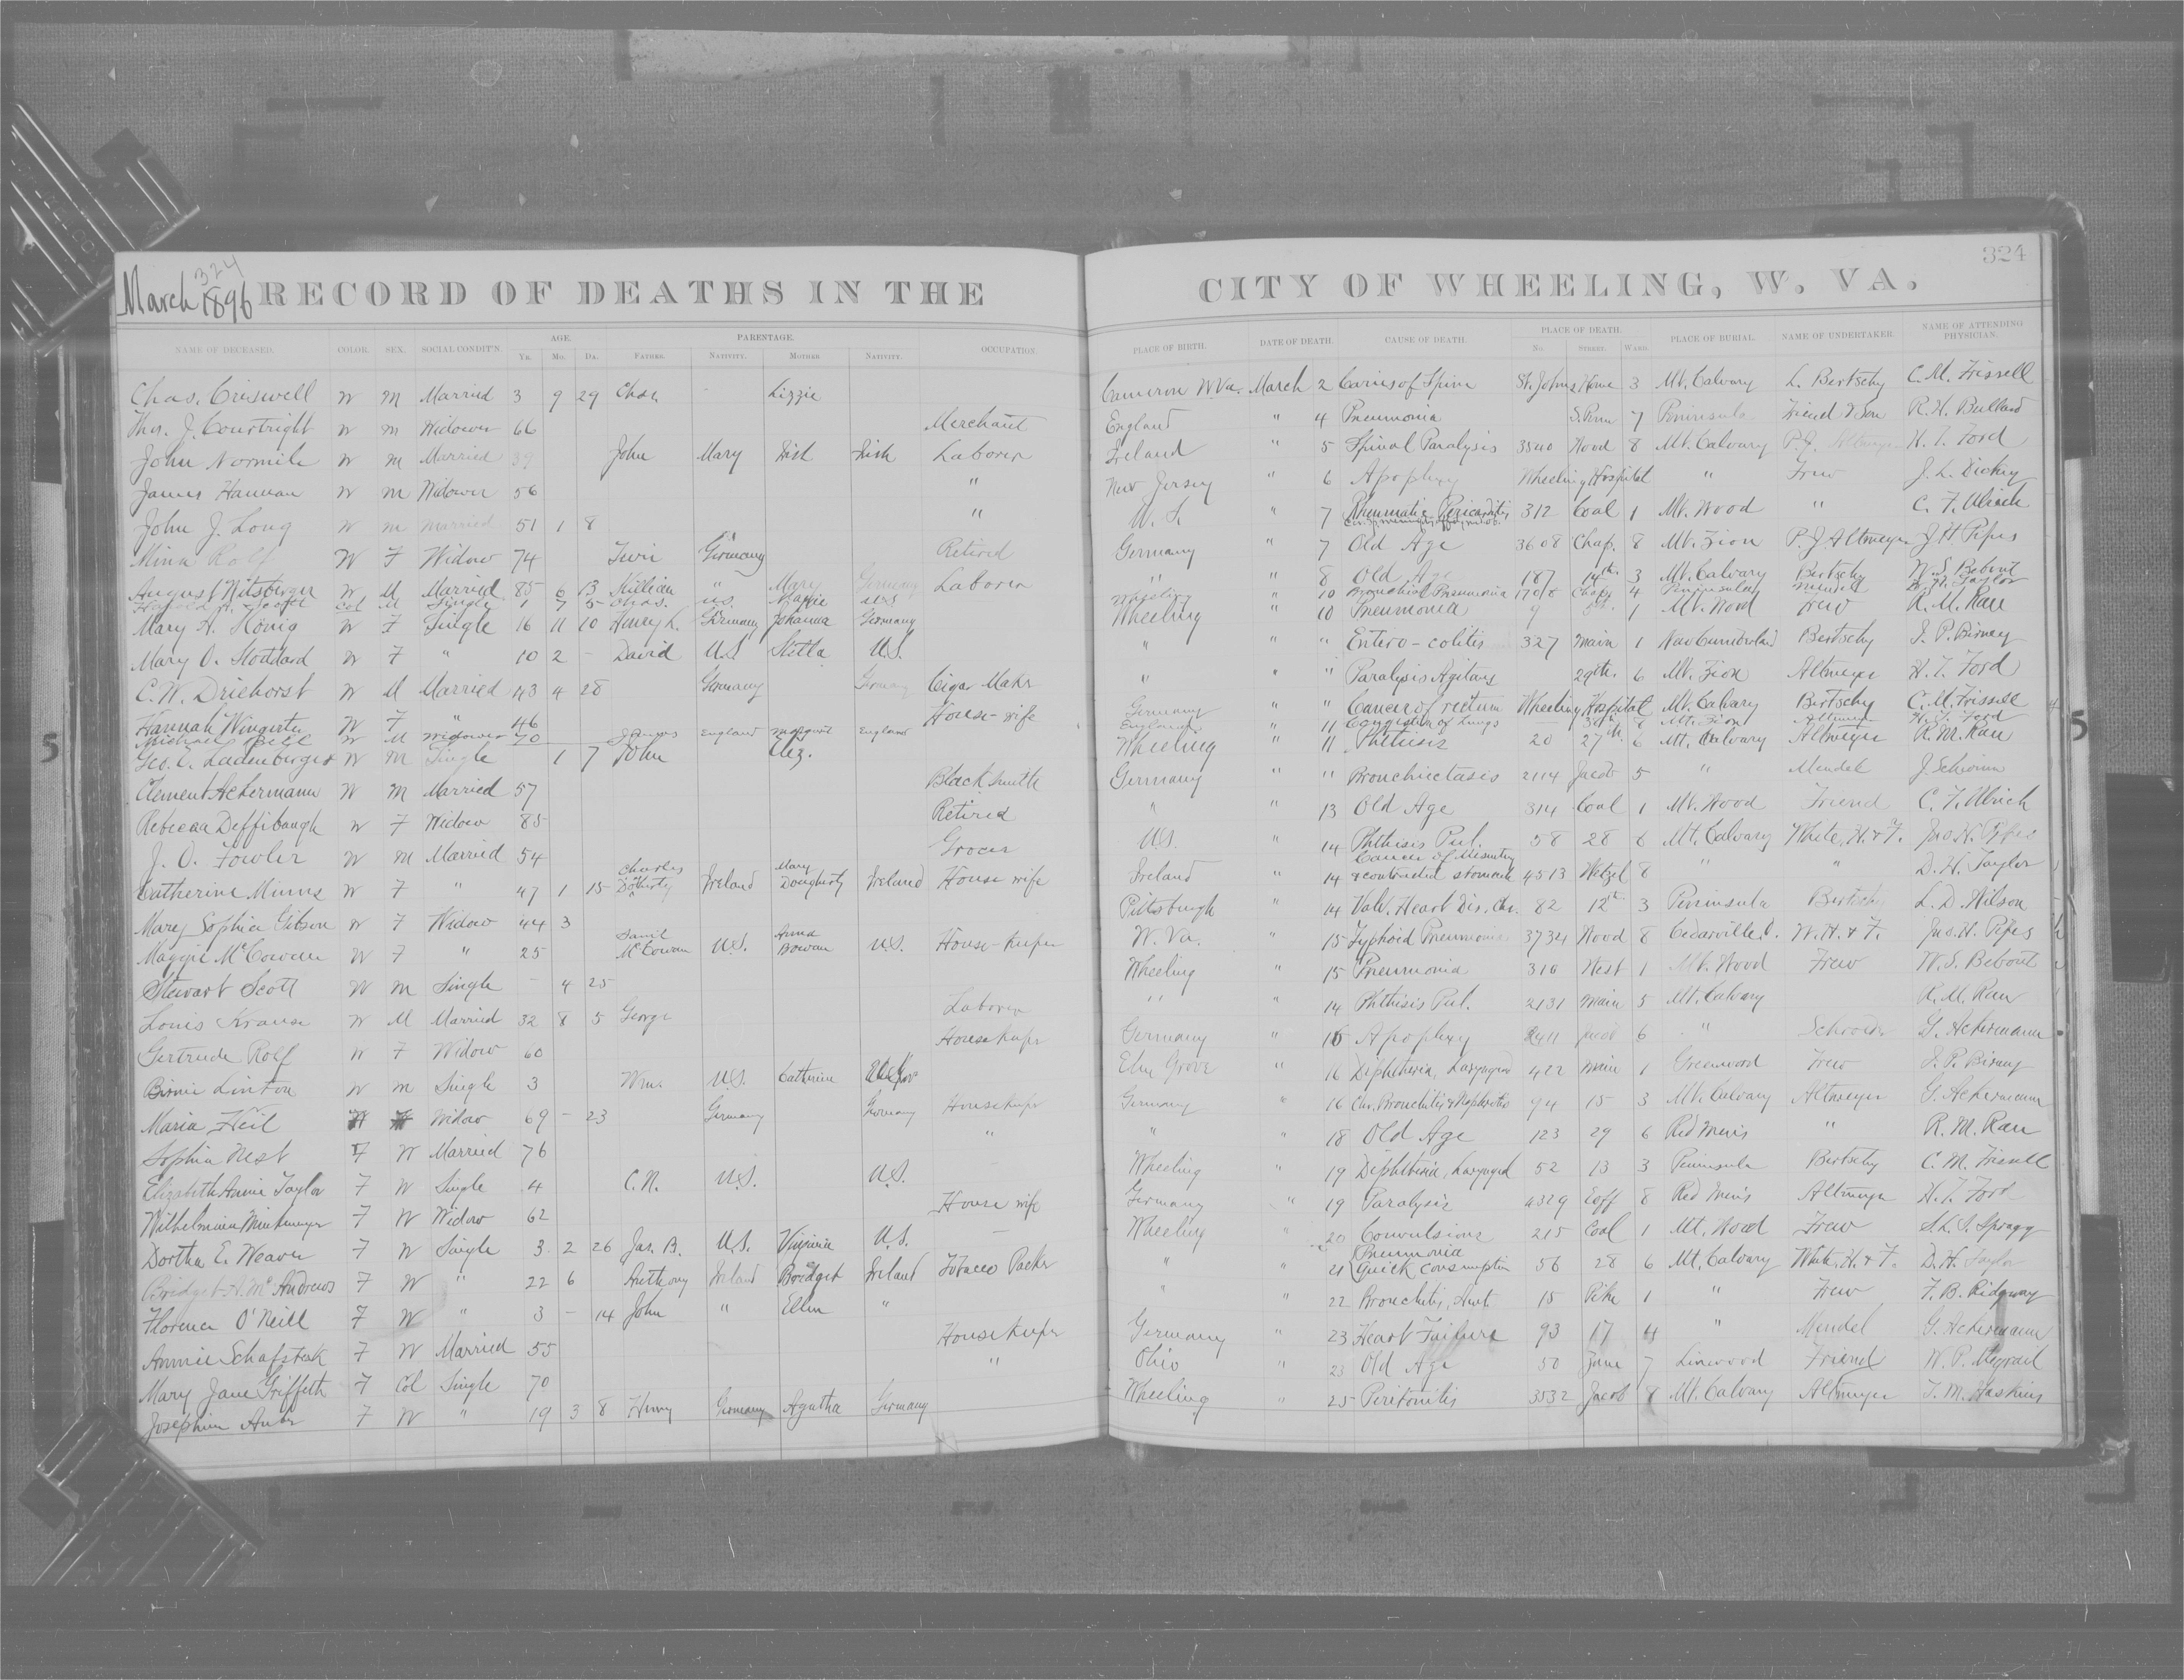 324
324
March 1896 RECORD OF DEATHS IN THE CITY OF WHEELING, W. VA.
NAME OF DECEASED. COLOR. SEX. SOCIAL CONDIT'N. AGE. Yr. Mo. Da. PARENTAGE. Father. Nativity. Mother Nativity. OCCUPATION. PLACE OF BIRTH. DATE OF DEATH. CAUSE OF DEATH. PLACE OF DEATH. No. Street. Ward. PLACE OF BURIAL. NAME OF UNDERTAKER. NAME OF ATTENDING PHYSICIAN.
Chas. Criswell W M Married 3 9 29 Chas. Lizzie Cameron W.Va. March 2 Caries of Spine St. Johns Home 3 Mt. Calvary L. Bertschy C. M. Frissell
Thos. J. Courtright W M Widower 66 Merchant England " 4 Pneumonia 7 Peninsula Friend & Son R. H. Bullard
John Normile W M Married 39 John Mary Irish Irish Laborer Ireland " 5 Spinal Paralysis 3540 Wood 8 Mt. Calvary P. J. Altmeyer H. T. Ford
James Hannan W M Widower 56 " New Jersey " 6 Apoplexy Wheeling Hospital " Frew J. L. Dickey
John J. Long W M Married 51 1 8 " " 7 Rheumatic Pericarditis 312 Coal 1 Mt. Wood " C. F. Ulrich
Mina Rolf W F Widow 74 Germany Retired Germany " 7 Old Age 3608 Chap. 8 Mt. Zion P. J. Altmeyer J H Pipes
August Nitsberger W M Married 85 6 13 Killian " Mary Germany Laborer " " 8 Old Age 187 14th 3 Mt. Calvary Bertschy W. S. Bebout
Col M Single 1 7 5 Chas. U.S. Maggie U.S. Wheeling " 10 Bronchial Pneumonia 1708 Chap. 4 Peninsula Mendel D. H. Taylor
Mary A. Honig W F Single 16 11 10 Henry L. Germany Johanna Germany Wheeling " 10 Pneumonia 9 1 Mt. Wood Frew R. M. Rau
Mary O. Stoddard W F " 10 2 - David U.S. Stella U.S. " " " Entero-colitis 327 Main 1 New Cumberland Bertschy J. P. Birney
C. W. Driehorst W M Married 43 4 28 Germany Germany Cigar Makr " " " Paralysis Agitans 29th 6 Mt. Zion Altmeyer H. T. Ford
Hannah Wingerter W F " 46 House-wife Germany " " Cancer of rectum Wheeling Hospital Mt. Calvary Bertschy C. M. Frissell
Michael Bell W M Widower 70 James England Margaret England England 11 Congestion of Lungs 8 Mt. Zion Altmeyer H. T. Ford
Geo. C. Ladenberger W M Single 1 7 John Eliz. Wheeling " 11 Phthisis 20 27th 6 Mt. Calvary Altmeyer R. M. Rau
Clement Ackermann W M Married 57 Blacksmith Germany " " Bronchiectasis 2114 Jacob 5 " Mendel
Rebecca Deffibaugh W F Widow 85 Retired " " 13 Old Age 314 Coal 1 Mt. Wood Friend C. F. Ulrich
J. O. Fowler W M Married 54 Grocer U.S. " 14 Phthisis Pul. 58 28 6 Mt. Calvary White, H. & F. Jno. H. Pipes
Catherine Mimms W F " 47 1 15 Charles Doherty Ireland Mary Dougherty Ireland House wife Ireland " 14 Cancer of Mesentery 4513 Wetzel 8 " " D. H. Taylor
Mary Sophia Gibson W F Widow 44 3 Pittsburgh 14 Valv. Heart Dis. Chr. 82 12th 3 Peninsula Bertschy L. D. Wilson
Maggie McCowan W F " 25 Saml McCowan U.S. Anna Bowan U.S. House-keeper W. Va. " 15 Typhoid Pneumonia 3734 Wood 8 Cedarville O. W. H. & F. Jno. H. Pipes
Stewart Scott W M Single - 4 25 Wheeling " 15 Pneumonia 310 West 1 Mt. Wood Frew W. S. Bebout
Louis Krause W M Married 32 8 5 George Laborer " " 14 Phthisis Pul. 2131 Main 5 Mt. Calvary R. M. Rau
Gertrude Rolf W F Widow 60 Housekeeper Germany " 16 Apoplexy 2411 Jacob 6 " Schroder G. Ackermann
Birnie Linton W M Single 3 Wm. U.S. Catherine Elm Grove " 16 Diphtheria, Laryngeal 422 Main 1 Greenwood Frew J. P. Birney
Maria Heil Widow 69 - 23 Germany Germany Housekeeper Germany " 16 Chr. Bronchitis & Nephritis 94 15 3 Mt. Calvary Altmeyer G. Ackermann
Sophia Nest F W Married 76 " " " 18 Old Age 123 29 6 Red Men's " R. M. Rau
Elizabeth Annie Taylor F W Single 4 C. N. U.S. U.S. Wheeling " 19 Diphtheria, Laryngeal 52 13 3 Peninsula Bertschy C. M. Frissell
Wilhelmina Minkemeyer F W Widow 62 House wife Germany " 19 Paralysis 4329 Eoff 8 Red Men's Altmeyer H. T. Ford
Dortha E. Weaver F W Single 3 2 26 Jas. B. U.S. Virginia U.S. - Wheeling " 20 Convulsions 215 Coal 1 Mt. Wood Frew S. L. S. Spragg
Bridget A. McAndrews F W " 22 6 Anthony Ireland Bridget Ireland Tobacco Packer " " 21 Pneumonia Quick consumption 56 28 6 Mt. Calvary White, H. & F. D. H. Taylor
Florence O'Neill F W " 3 - 14 John " Ellen " " " 22 Bronchitis, Acut. 15 Pike 1 " Frew F. B. Ridgway
Annie Schafsteck F W Married 55 Housekeeper Germany 23 Heart Failure 93 17 4 " Mendel G. Ackermann
Mary Jane Griffith F Col Single 70 " Ohio " 23 Old Age 50 7 Linwood Friend
Josephine Auber F W " 19 3 8 Henry Germany Agatha Germany Wheeling " 25 Peritonitis 3532 Jacob 8 Mt. Calvary Altmeyer T. M. Haskins
5
5